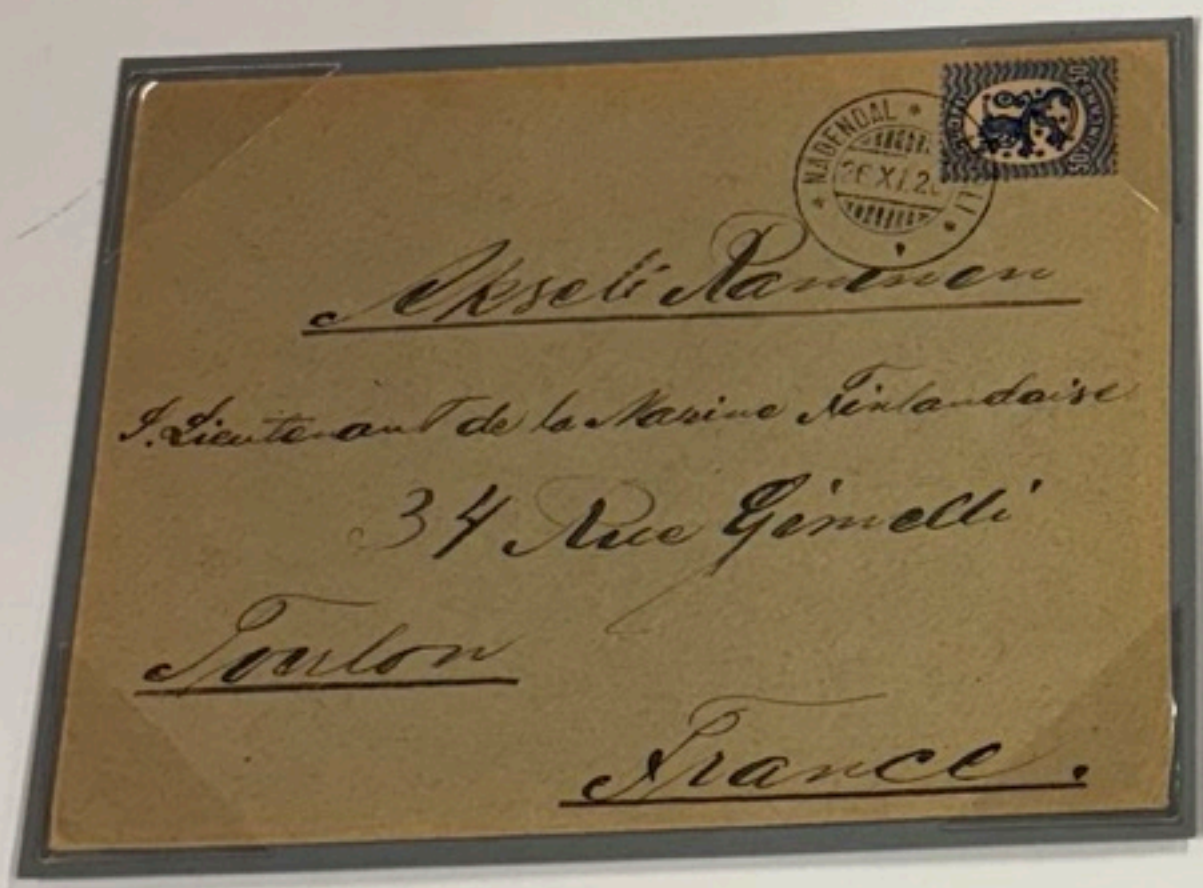 NÅDENDAL
26 XI.2
Akseli
I. Lieutenant de la Marine Finlandaise
34 Rue Gimelli
Toulon
France.